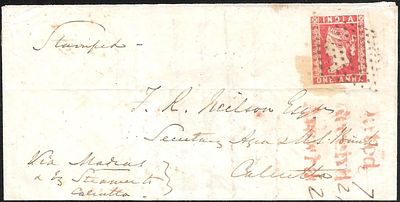 Stamped
INDIA
ONE ANNA
J. R. Neilson Esqr
Secretary Agra & U.S. Bank
Calcutta
Via Madras
& by Steamer to
Calcutta